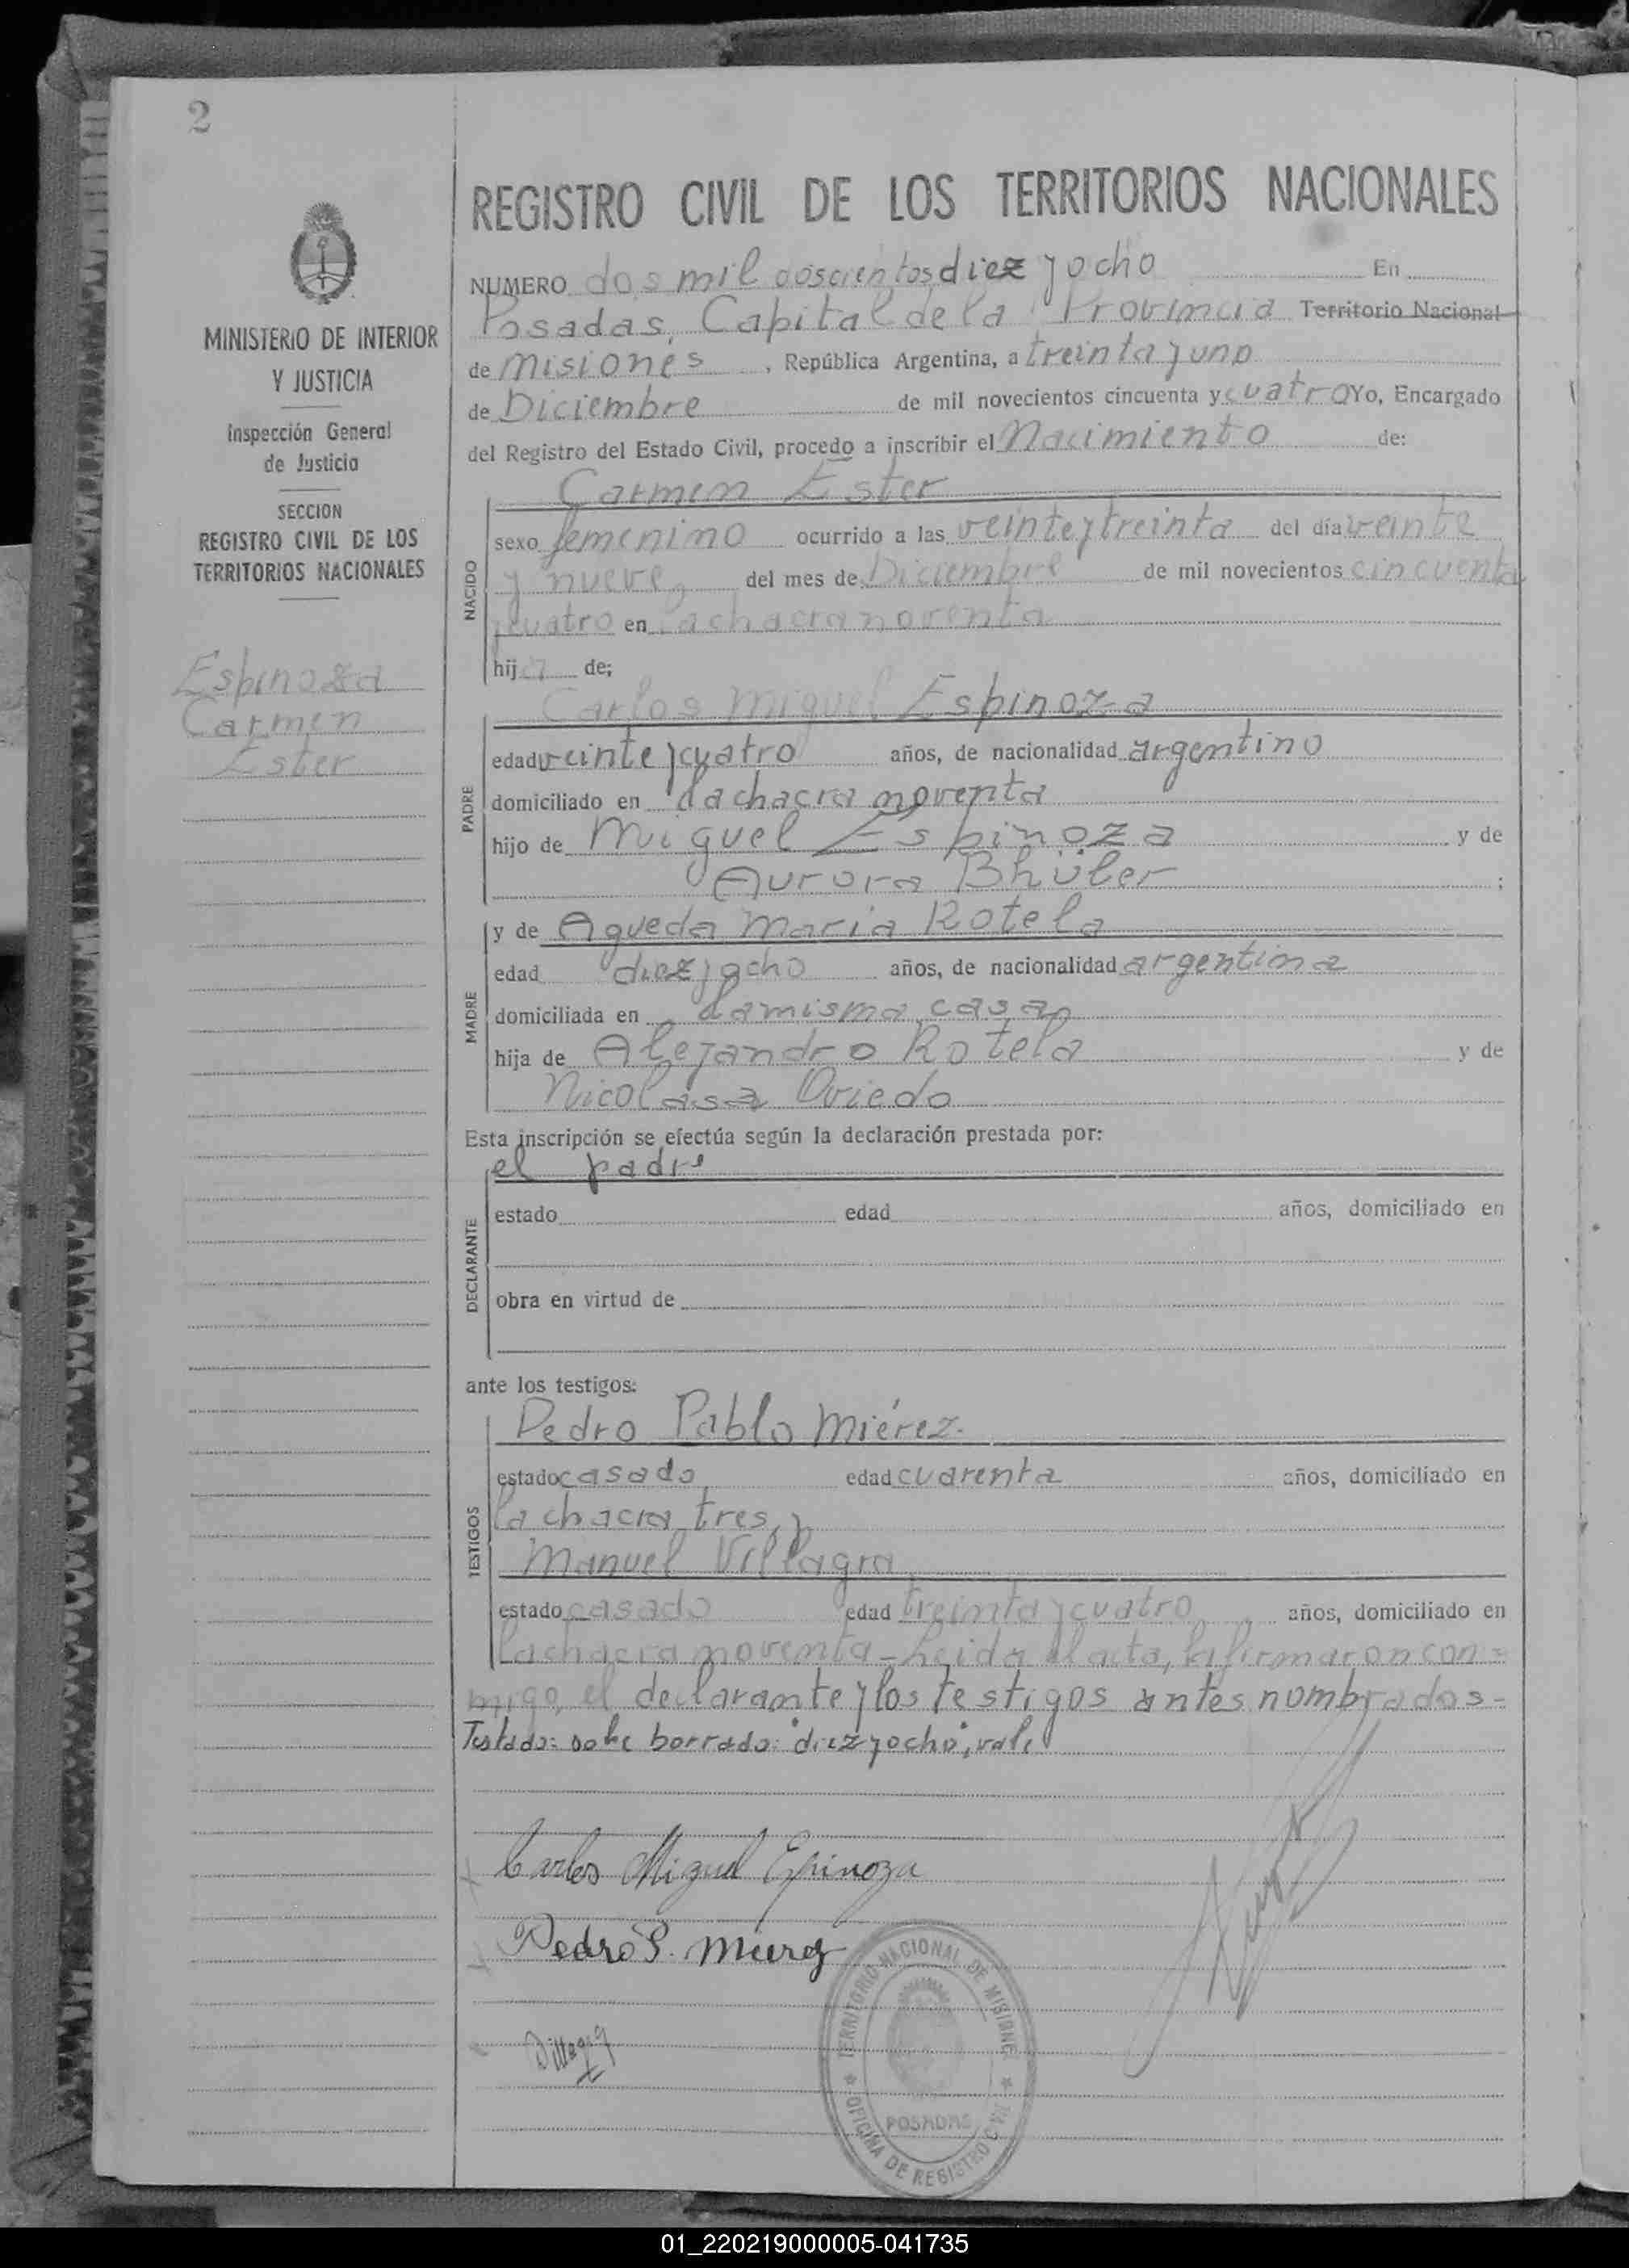 2
MINISTERIO DE INTERIOR
Y JUSTICIA
Inspección General
de Justicia
SECCION
REGISTRO CIVIL DE LOS
TERRITORIOS NACIONALES
Espinoza
Carmen
Ester
REGISTRO CIVIL DE LOS TERRITORIOS NACIONALES
NUMERO dos mil doscientos diez y ocho En
Posadas, Capital de la Provincia Territorio Nacional
de Misiones, República Argentina, a treinta y uno
de Diciembre de mil novecientos cincuenta y cuatro Yo, Encargado
del Registro del Estado Civil, procedo a inscribir el Nacimiento de:
NACIDO
Carmen Ester
sexo femenino ocurrido a las veinte y treinta del día veinte
y nueve, del mes de Diciembre de mil novecientos cincuenta
y cuatro en la chacra noventa
hija de;
PADRE
Carlos Miguel Espinoza
edad veinte y cuatro años, de nacionalidad argentino
domiciliado en la chacra noventa
hijo de Miguel Espinoza y de
Aurora Bhüler ;
MADRE
y de Agueda Maria Rotela
edad diez y ocho años, de nacionalidad argentina
domiciliada en la misma casa
hija de Alejandro Rotela y de
Nicolasa Oviedo
Esta inscripción se efectúa según la declaración prestada por:
DECLARANTE
el padre
estado edad años, domiciliado en
obra en virtud de
ante los testigos:
TESTIGOS
Pedro Pablo Miérez.
estado casado edad cuarenta años, domiciliado en
la chacra tres, y
Manuel Villagra
estado casado edad treinta y cuatro años, domiciliado en
la chacra noventa - Leida el acta, la firmaron con=
migo, el declarante y los testigos antes nombrados-
Testado: sobre borrado: "diez y ocho", vale
Carlos Miguel Espinoza
Pedro P. Mierez
TERRITORIO NACIONAL DE MISIONES
POSADAS
OFICINA DE REGISTRO CIVIL
01_220219000005-041735